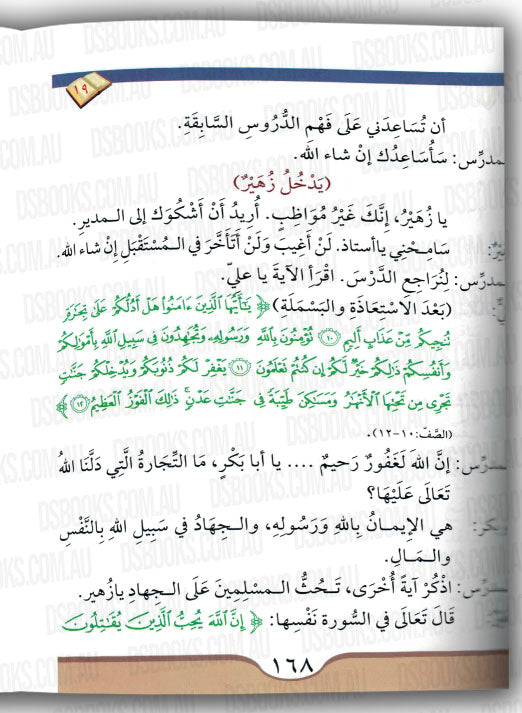 ١٩
أن تُسَاعِدَني عَلَى فَهْمِ الدُّرُوسِ السَّابِقَةِ.
مدرِّس: سَأُسَاعِدُك إنْ شاء الله.
(يَدْخُلُ زُهَيْرٌ)
يا زُهَيْرُ، إنَّكَ غَيْرُ مُوَاظِبٍ. أُرِيدُ أَنْ أَشْكُوَكَ إلى الـمديرِ.
سَامِـحْنِي ياأستاذ. لَنْ أَغِيبَ وَلَنْ أَتَأَخَّرَ في الـمُسْتَقْبَلِ إنْ شاء الله.
مدرِّس: لِنُرَاجِعِ الدَّرْسَ. اقْرَأِ الآيةَ يا عليّ.
(بَعْدَ الاسْتِعَاذَةِ والبَسْمَلَةِ) ﴿ يَٰٓأَيُّهَا ٱلَّذِينَ ءَامَنُوا۟ هَلْ أَدُلُّكُمْ عَلَىٰ تِجَٰرَةٍ
تُنجِيكُم مِّنْ عَذَابٍ أَلِيمٍ ١٠ تُؤْمِنُونَ بِٱللَّهِ وَرَسُولِهِۦ وَتُجَٰهِدُونَ فِى سَبِيلِ ٱللَّهِ بِأَمْوَٰلِكُمْ
وَأَنفُسِكُمْ ذَٰلِكُمْ خَيْرٌ لَّكُمْ إِن كُنتُمْ تَعْلَمُونَ ١١ يَغْفِرْ لَكُمْ ذُنُوبَكُمْ وَيُدْخِلْكُمْ جَنَّٰتٍ
تَجْرِى مِن تَحْتِهَا ٱلْأَنْهَٰرُ وَمَسَٰكِنَ طَيِّبَةً فِى جَنَّٰتِ عَدْنٍ ۚ ذَٰلِكَ ٱلْفَوْزُ ٱلْعَظِيمُ ١٢ ﴾
(الصَّفّ: ١٠-١٢).
مدرِّس: إنَّ اللهَ لَغَفُورٌ رَحيمٌ .... يا أبا بَكْرٍ، مَا التِّجَارةُ الَّتِي دَلَّنَا اللهُ
تَعَالَى عَلَيْهَا؟
هي الإيمـانُ بِاللهِ وَرَسُولِهِ، والـجِهَادُ في سَبِيلِ اللهِ بِالنَّفْسِ
والـمَـالِ.
مدرِّس: اذْكُرْ آيةً أُخْرَى، تَـحُثُّ الـمسْلِمِينَ عَلَى الـجهادِ يازُهير.
قَالَ تَعَالَى في السُّورة نَفْسِها: ﴿ إِنَّ ٱللَّهَ يُحِبُّ ٱلَّذِينَ يُقَٰتِلُونَ
١٦٨